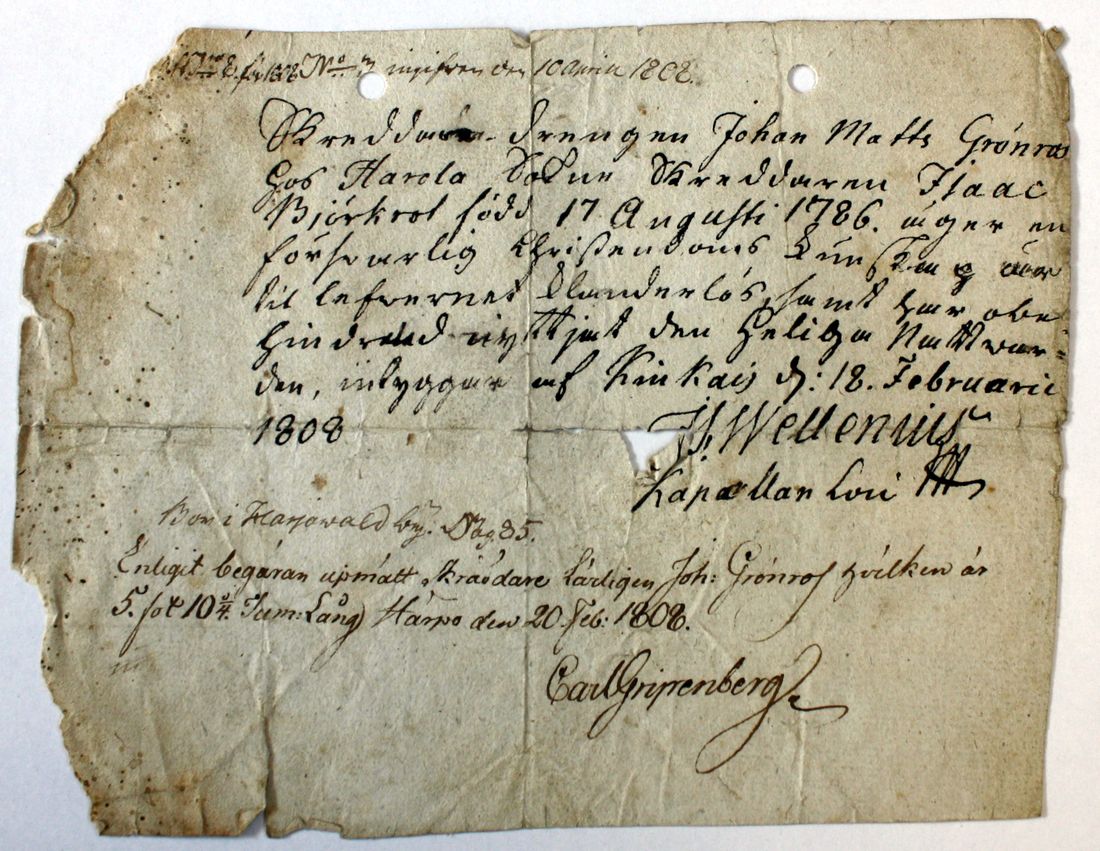 No 3 ingifven den 10 April 1808.
Skreddare drengen Johan Matts Grönros
hos Harola Sokne Skreddaren Isaac
Björkrot född 17 Augusti 1786. äger en
försvarlig Christendoms Kunskap är
til lefvernet klanderlös, samt har obe-
hindrad nyttjat den Heliga Nattvar-
den, intyggar af Kinkais d: 18. Februarii
1808
Is. Wellenius
Kapellan Loci
Bor i Harjawald by. Pag. 85.
Enligit begäran upmätt skräddare Lärligen Joh: Grönros hvilken är
5. fot 10 3/4. Tum: Lång) Harjo den 20. Feb: 1808.
Carl Gripenberg